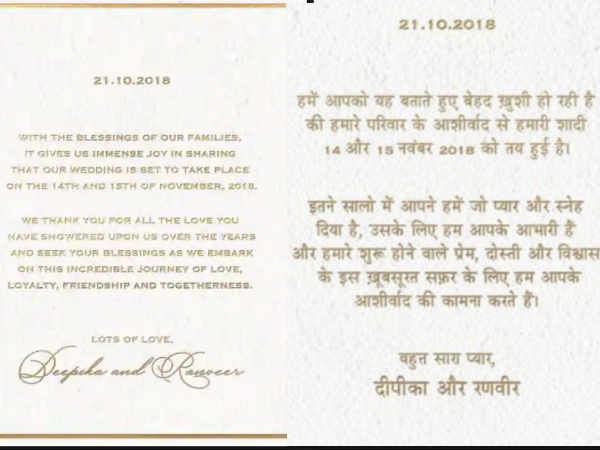 21.10.2018
WITH THE BLESSINGS OF OUR FAMILIES,
IT GIVES US IMMENSE JOY IN SHARING
THAT OUR WEDDING IS SET TO TAKE PLACE
ON THE 14TH AND 15TH OF NOVEMBER, 2018.
WE THANK YOU FOR ALL THE LOVE YOU
HAVE SHOWERED UPON US OVER THE YEARS
AND SEEK YOUR BLESSINGS AS WE EMBARK
ON THIS INCREDIBLE JOURNEY OF LOVE,
LOYALTY, FRIENDSHIP AND TOGETHERNESS.
LOTS OF LOVE,
Deepika and Ranveer
21.10.2018
हमें आपको यह बताते हुए बेहद ख़ुशी हो रही है
की हमारे परिवार के आशीर्वाद से हमारी शादी
14 और 15 नवंबर 2018 को तय हुई है।
इतने सालो में आपने हमें जो प्यार और स्नेह
दिया है, उसके लिए हम आपके आभारी हैं
और हमारे शुरू होने वाले प्रेम, दोस्ती और विश्वास
के इस ख़ूबसूरत सफ़र के लिए हम आपके
आशीर्वाद की कामना करते हैं।
बहुत सारा प्यार,
दीपीका और रणवीर